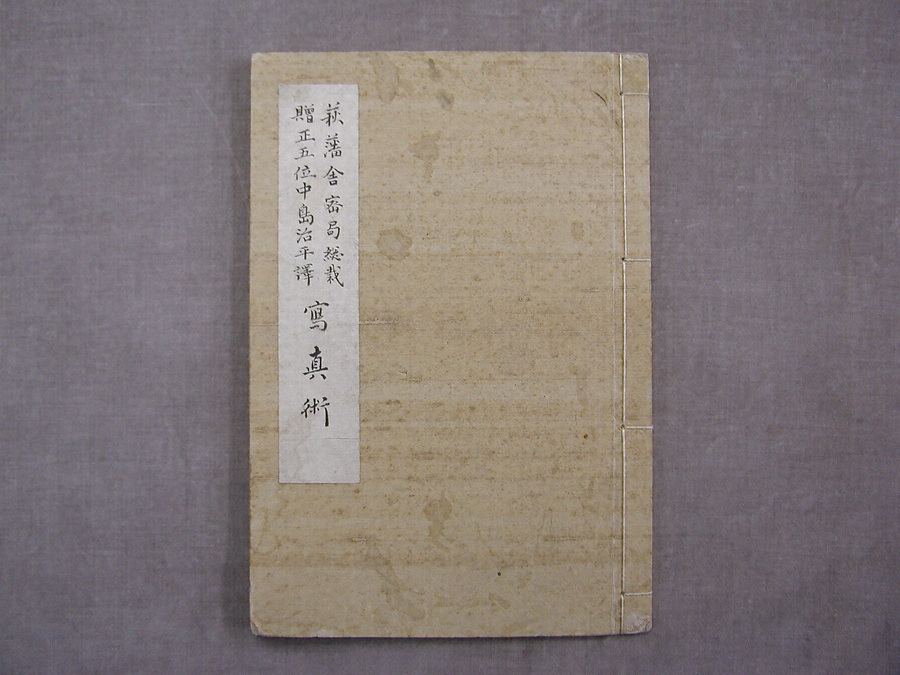 萩藩舎密局総裁
贈正五位中島治平譯
寫真術